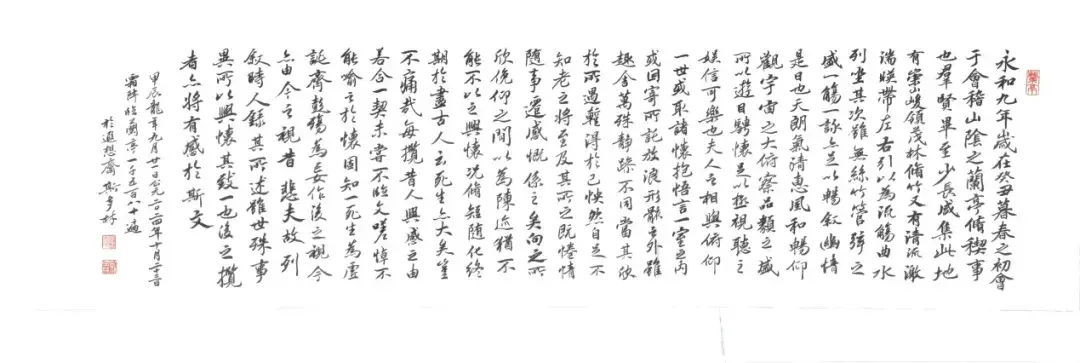 蘭亭
永和九年歲在癸丑暮春之初會
于會稽山陰之蘭亭脩禊事
也羣賢畢至少長咸集此地
有崇山峻領茂林脩竹又有清流激
湍暎帶左右引以為流觴曲水
列坐其次雖無絲竹管弦之
盛一觴一詠亦足以暢敘幽情
是日也天朗氣清惠風和暢仰
觀宇宙之大俯察品類之盛
所以遊目騁懷足以極視聽之
娛信可樂也夫人之相與俯仰
一世或取諸懷抱悟言一室之內
或因寄所託放浪形骸之外雖
趣舍萬殊靜躁不同當其欣
於所遇蹔得於己怏然自足不
知老之將至及其所之既惓情
隨事遷感慨係之矣向之所
欣俛仰之閒以為陳迹猶不
能不以之興懷況脩短隨化終
期於盡古人云死生亦大矣豈
不痛哉每攬昔人興感之由
若合一契未嘗不臨文嗟悼不
能喻之於懷固知一死生為虛
誕齊彭殤為妄作後之視今
亦由今之視昔悲夫故列
敘時人錄其所述雖世殊事
異所以興懷其致一也後之攬
者亦將有感於斯文
甲辰龍年九月廿一日是二〇二四年十月二十三日
霜降臨蘭亭一千五百八十遍
於遐想齋